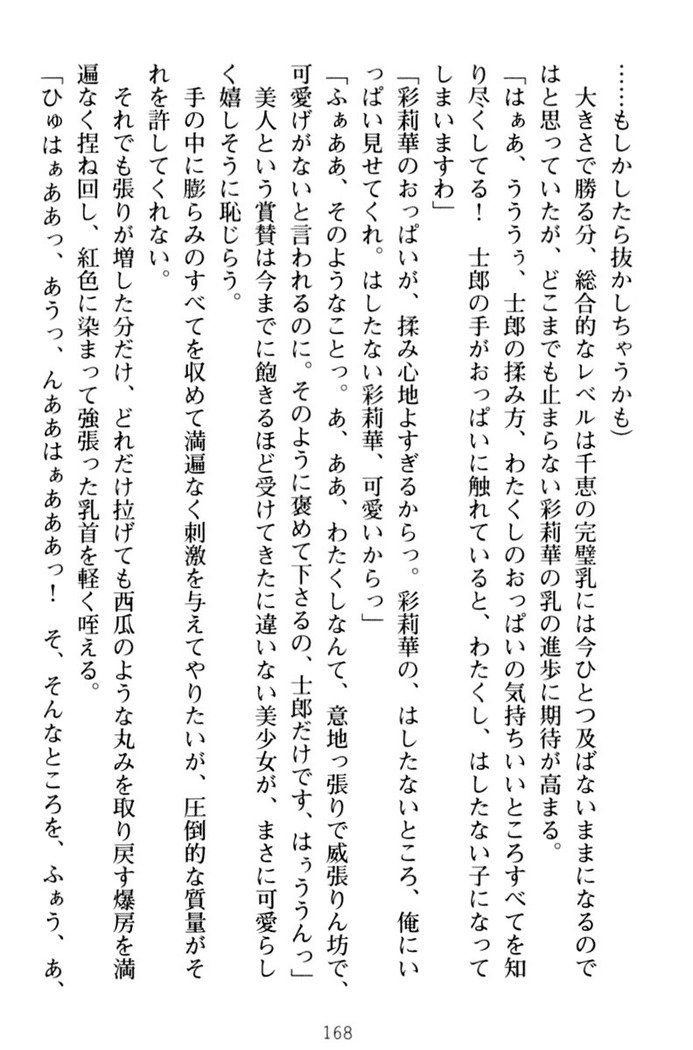 ……もしかしたら抜かしちゃうかも）
　大きさで勝る分、総合的なレベルは千恵の完璧乳には今ひとつ及ばないままになるので
はと思っていたが、どこまでも止まらない彩莉華の乳の進歩に期待が高まる。
「はぁあ、うううぅ、士郎の揉み方、わたくしのおっぱいの気持ちいいところすべてを知
り尽くしてる！　士郎の手がおっぱいに触れていると、わたくし、はしたない子になって
しまいますわ」
「彩莉華のおっぱいが、揉み心地よすぎるからっ。彩莉華の、はしたないところ、俺にい
っぱい見せてくれ。はしたない彩莉華、可愛いからっ」
「ふぁああ、そのようなことっ。あ、ああ、わたくしなんて、意地っ張りで威張りん坊で、
可愛げがないと言われるのに。そのように褒めて下さるの、士郎だけです、はぅううんっ」
　美人という賞賛は今までに飽きるほど受けてきたに違いない美少女が、まさに可愛らし
く嬉しそうに恥じらう。
　手の中に膨らみのすべてを収めて満遍なく刺激を与えてやりたいが、圧倒的な質量がそ
れを許してくれない。
　それでも張りが増した分だけ、どれだけ拉げても西瓜のような丸みを取り戻す爆房を満
遍なく捏ね回し、紅色に染まって強張った乳首を軽く咥える。
「ひゅはぁああっ、あうっ、んああはぁあああっ！　そ、そんなところを、ふぁう、あ、
168